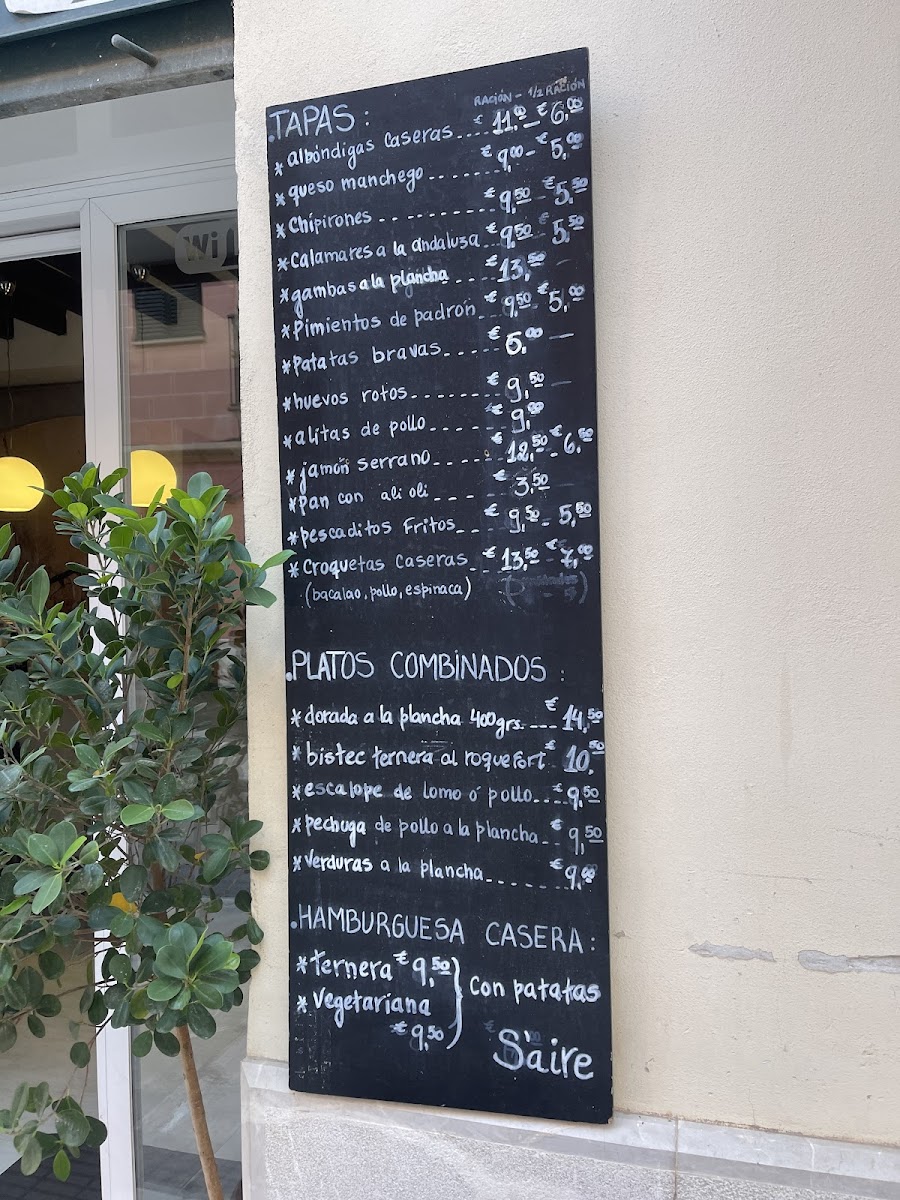 Wi
RACIÓN - 1/2 RACIÓN
.TAPAS:
* albóndigas caseras.... € 11,00 - € 6,00
* queso manchego ------- € 9,00 - € 5,00
* Chipirones --------- € 9,50 - € 5,50
* Calamares a la andaluza.. € 9,50 - € 5,50
* gambas a la plancha --- € 13,50 -
* Pimientos de padrón... € 9,50 - € 5,00
* Patatas bravas...... € 6,00 —
* huevos rotos-------- € 9,50 —
* alitas de pollo..... € 9,00
* jamón serrano...... € 12,50 - € 6,50
* Pan con ali oli --- € 3,50
* Pescaditos Fritos.. € 9,50 - 5,50
* Croquetas Caseras.. € 13,50 - € 7,00
(bacalao, pollo, espinaca)
.PLATOS COMBINADOS :
* dorada a la plancha 400grs.... € 14,50
* bistec ternera al roquefort € 10,50
* escalope de lomo ó pollo... € 9,50
* pechuga de pollo a la plancha.. € 9,50
* Verduras a la plancha........ € 9,00
.HAMBURGUESA CASERA:
* ternera € 9,50
* Vegetariana
€ 9,50
} Con patatas
S'aire